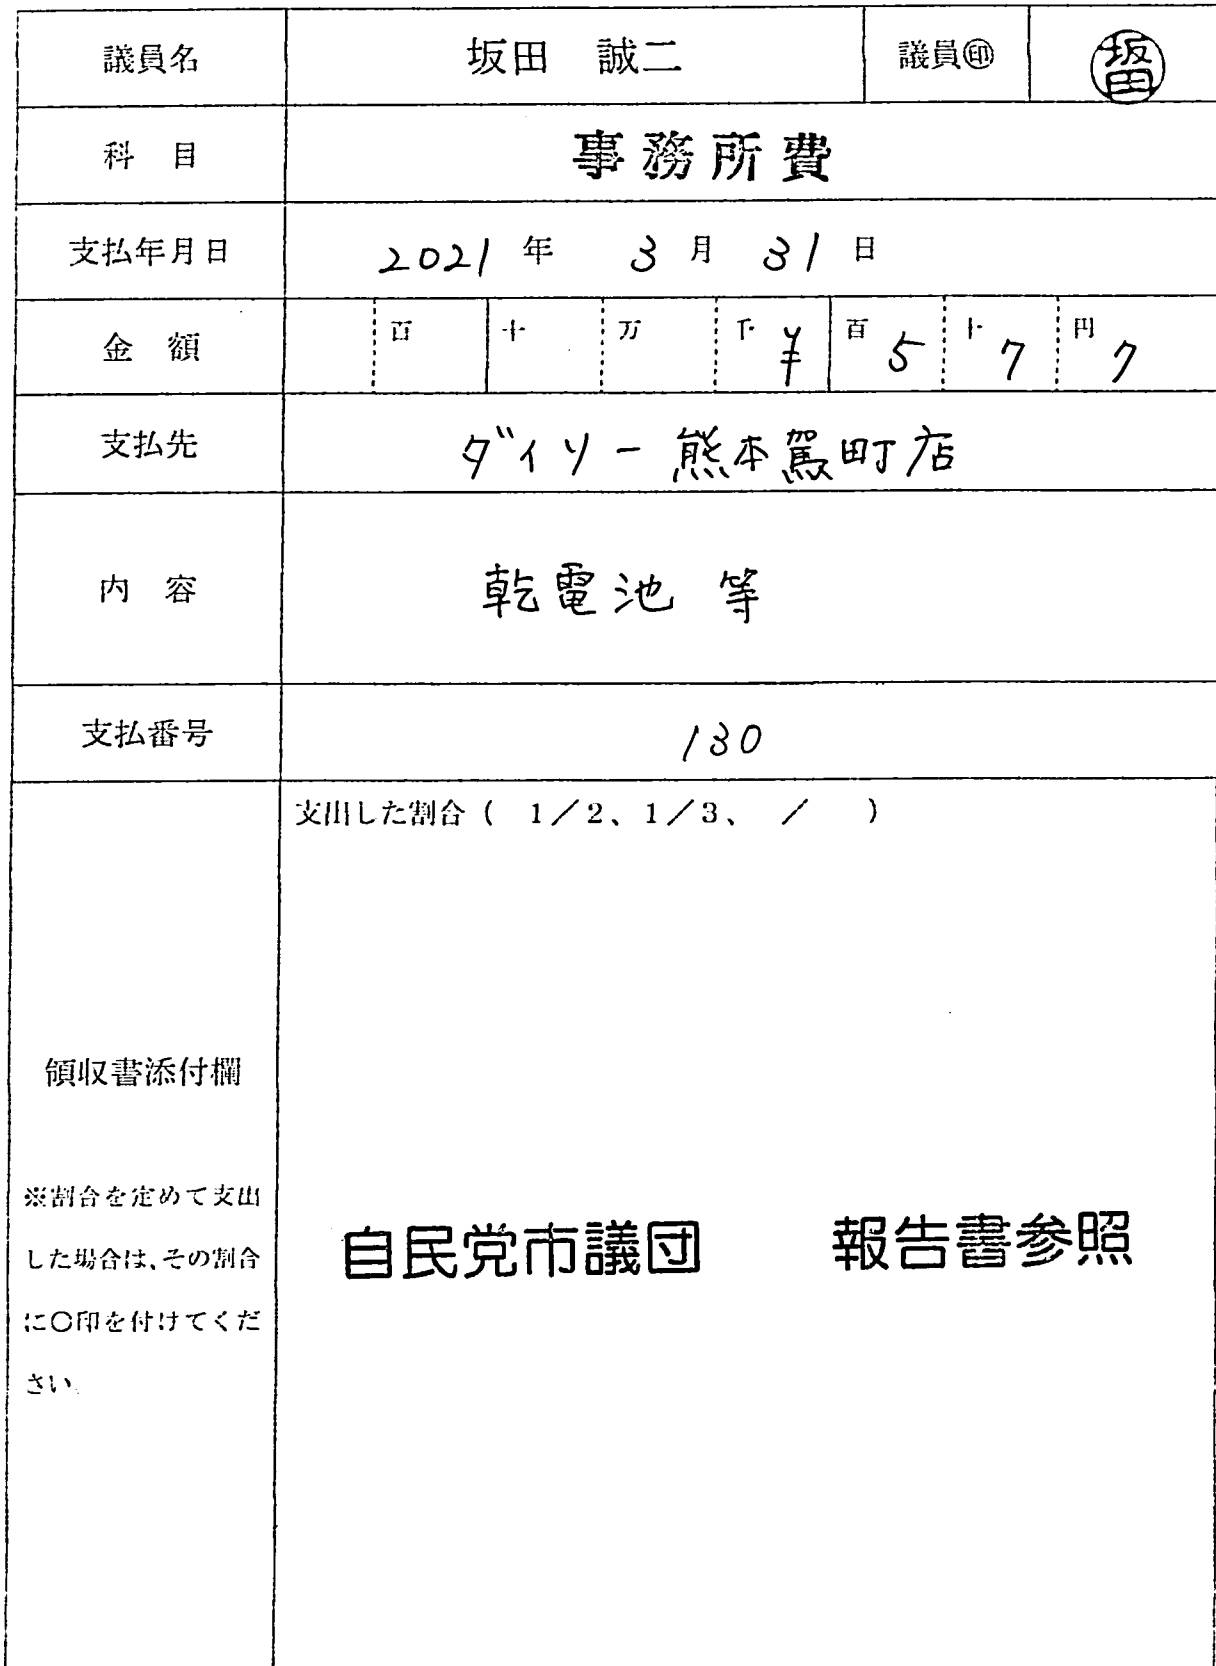 議員名 坂田 誠二 議員㊞ 坂田
科 目 事務所費
支払年月日 2021 年 3 月 31 日
金 額 百 十 万 千 ¥ 百 5 十 7 円 7
支払先 ダイソー熊本駕町店
内 容 乾電池 等
支払番号 130
支出した割合（ 1／2、1／3、 ／ ）
領収書添付欄
※割合を定めて支出
した場合は、その割合
に〇印を付けてくだ
さい。
自民党市議団 報告書参照